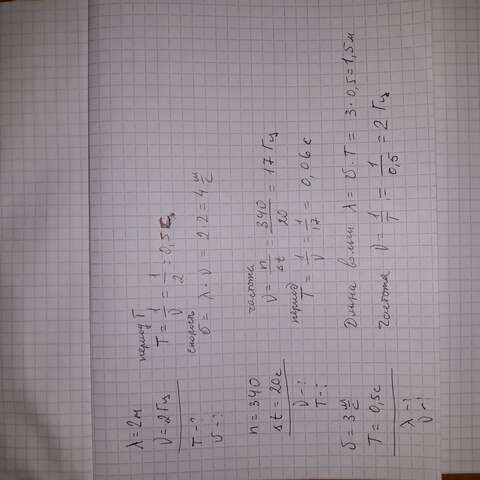 λ = 2м
ν = 2Гц
T = ?
υ = ?
период T
T = 1/ν = 1/2 = 0,5 с
скорость
υ = λ · ν = 2 2 = 4 м/с
n = 340
Δt = 20с
ν = ?
T = ?
частота
ν = n/Δt = 340/20 = 17 Гц
период
T = 1/ν = 1/17 = 0,06 с
υ = 3 м/с
T = 0,5с
λ = ?
ν = ?
Длина волны λ = υ · T = 3 · 0,5 = 1,5 м
Частота ν = 1/T = 1/0,5 = 2 Гц